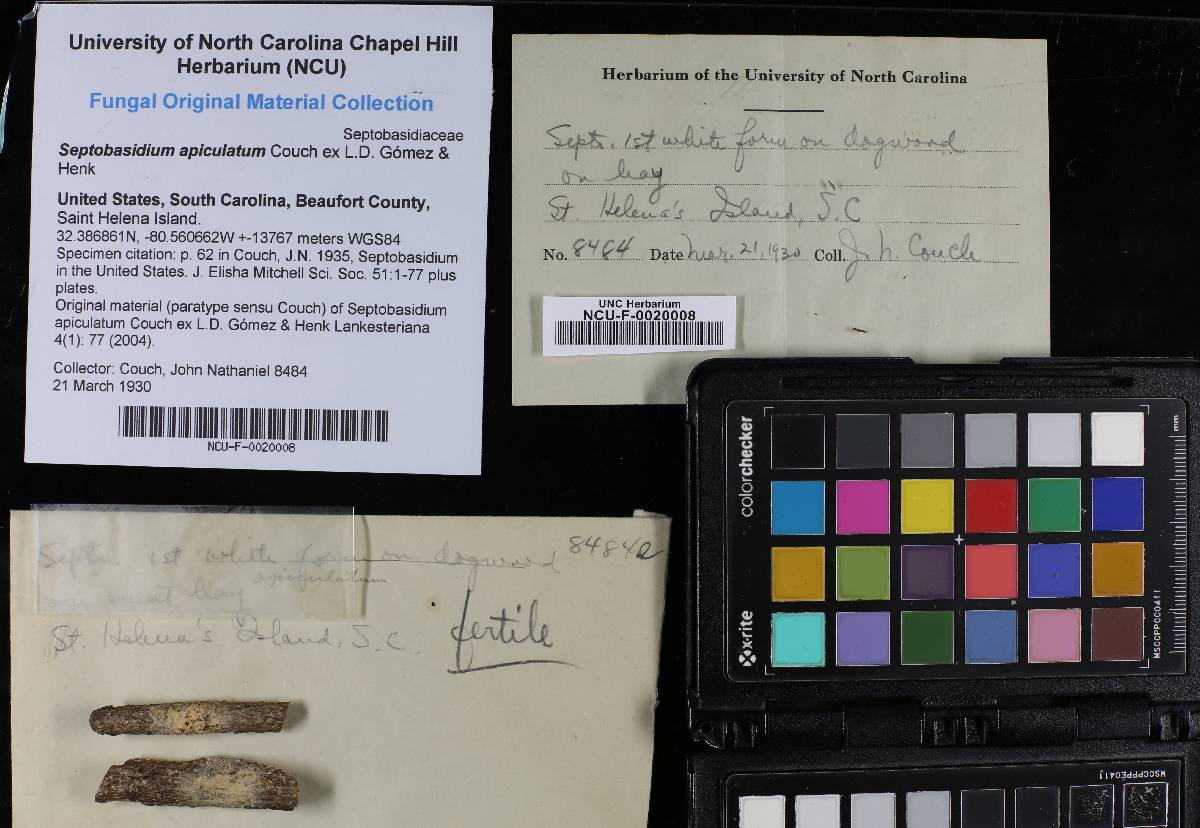 University of North Carolina Chapel Hill
Herbarium (NCU)
Fungal Original Material Collection
Septobasidiaceae
Septobasidium apiculatum Couch ex L.D. Gómez &
Henk
United States, South Carolina, Beaufort County,
Saint Helena Island.
32.386861N, -80.560662W +-13767 meters WGS84
Specimen citation: p. 62 in Couch, J.N. 1935, Septobasidium
in the United States. J. Elisha Mitchell Sci. Soc. 51:1-77 plus
plates.
Original material (paratype sensu Couch) of Septobasidium
apiculatum Couch ex L.D. Gómez & Henk Lankesteriana
4(1): 77 (2004).
Collector: Couch, John Nathaniel 8484
21 March 1930
NCU-F-0020008
Herbarium of the University of North Carolina
Septo. 1st white form on dogwood
on bay
St. Helena's Island, S.C
No. 8484 Date Mar. 21, 1930 Coll. J. N. Couch
UNC Herbarium
NCU-F-0020008
Septo. 1st white form on dogwood 8484a
apiculatum
on sweet bay
St. Helena's Island, S.C. fertile
colorchecker
x-rite
mm
MSCCPPC00411
MSCCPPPE0411